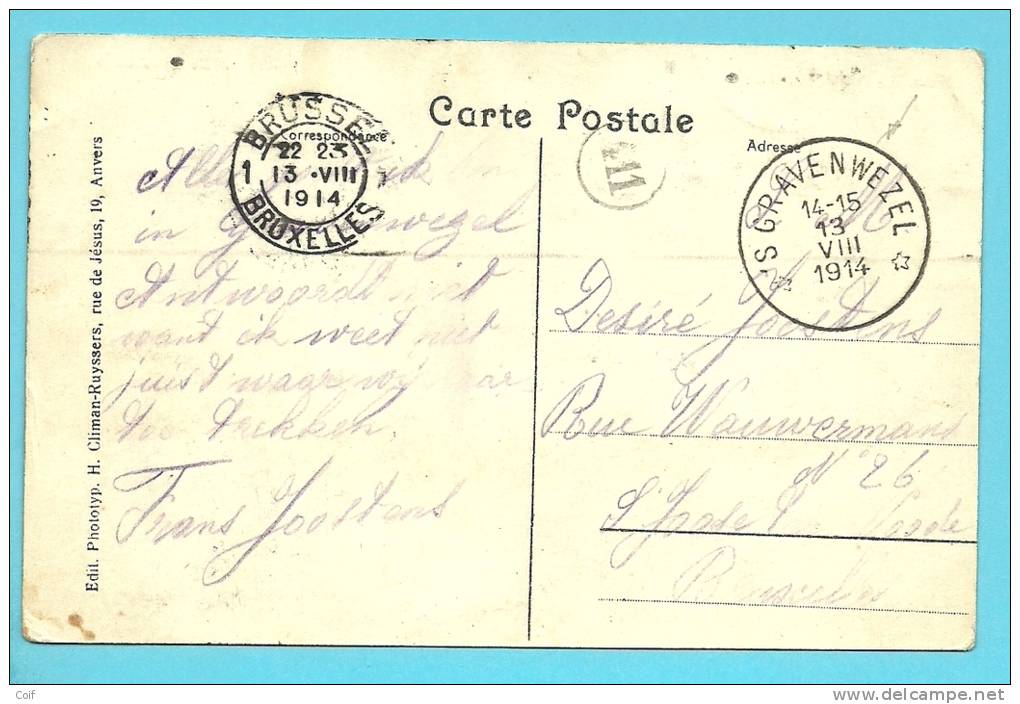 Carte Postale
Correspondance
Adresse
BRUSSEL
22 23
1 13 · VIII
1914
BRUXELLES
211
S'GRAVENWEZEL
14-15
13
VIII
1914
in wezel
Antwoordt niet
want ik weet niet
juist waar wij
toe trekken.
Frans Joostens
Desiré Joostens
Rue Wauwermans
N° 26
S. Josse
Bruxelles
Edit. Phototyp. H. Climan-Ruyssers, rue de Jésus, 19, Anvers
Coif
www.delcampe.net